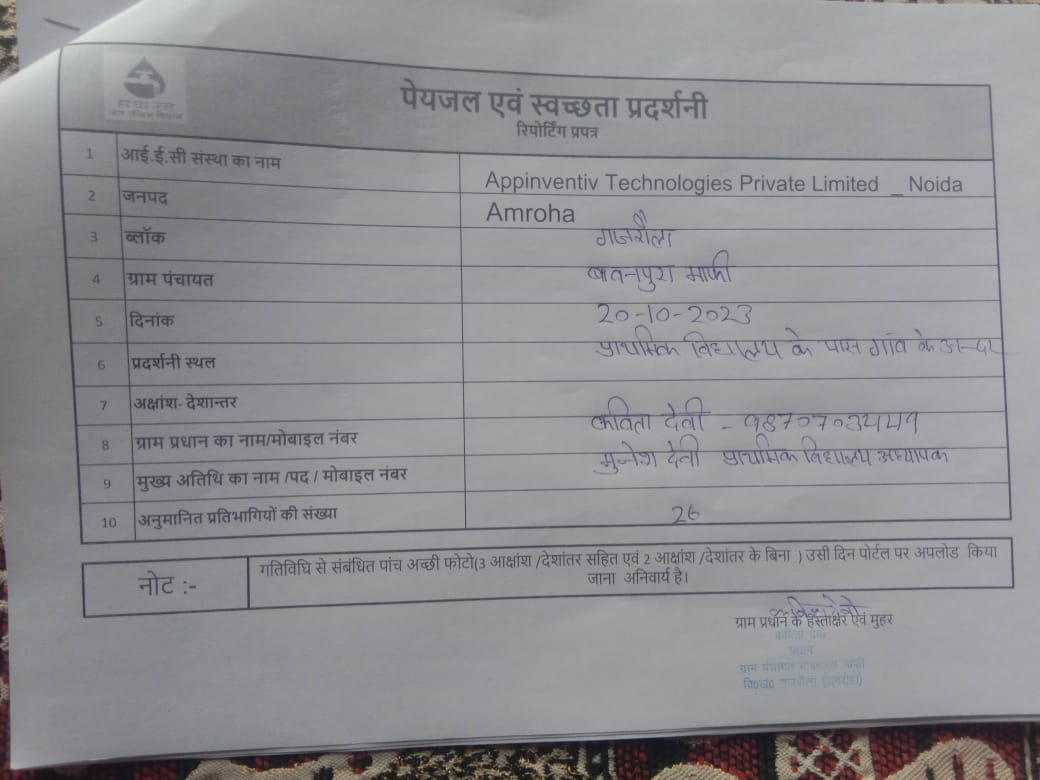 हर घर जल
जल जीवन मिशन
पेयजल एवं स्वच्छता प्रदर्शनी
रिपोर्टिंग प्रपत्र
1 आई.ई.सी संस्था का नाम Appinventiv Technologies Private Limited _ Noida
2 जनपद Amroha
3 ब्लॉक गजरौला
4 ग्राम पंचायत माफी
5 दिनांक 20-10-2023
6 प्रदर्शनी स्थल प्राथमिक विद्यालय के पास गाँव के अन्दर
7 अक्षांश- देशान्तर
8 ग्राम प्रधान का नाम/मोबाइल नंबर कविता देवी -
9 मुख्य अतिथि का नाम /पद / मोबाइल नंबर मुनेश देवी प्राथमिक विद्यालय अध्यापक
10 अनुमानित प्रतिभागियों की संख्या 26
नोट :- गतिविधि से संबंधित पांच अच्छी फोटो(3 आक्षांश /देशांतर सहित एवं 2 आक्षांश /देशांतर के बिना ) उसी दिन पोर्टल पर अपलोड किया
जाना अनिवार्य है।
ग्राम प्रधान के हस्ताक्षर एवं मुहर
प्रधान
ग्राम पंचायत